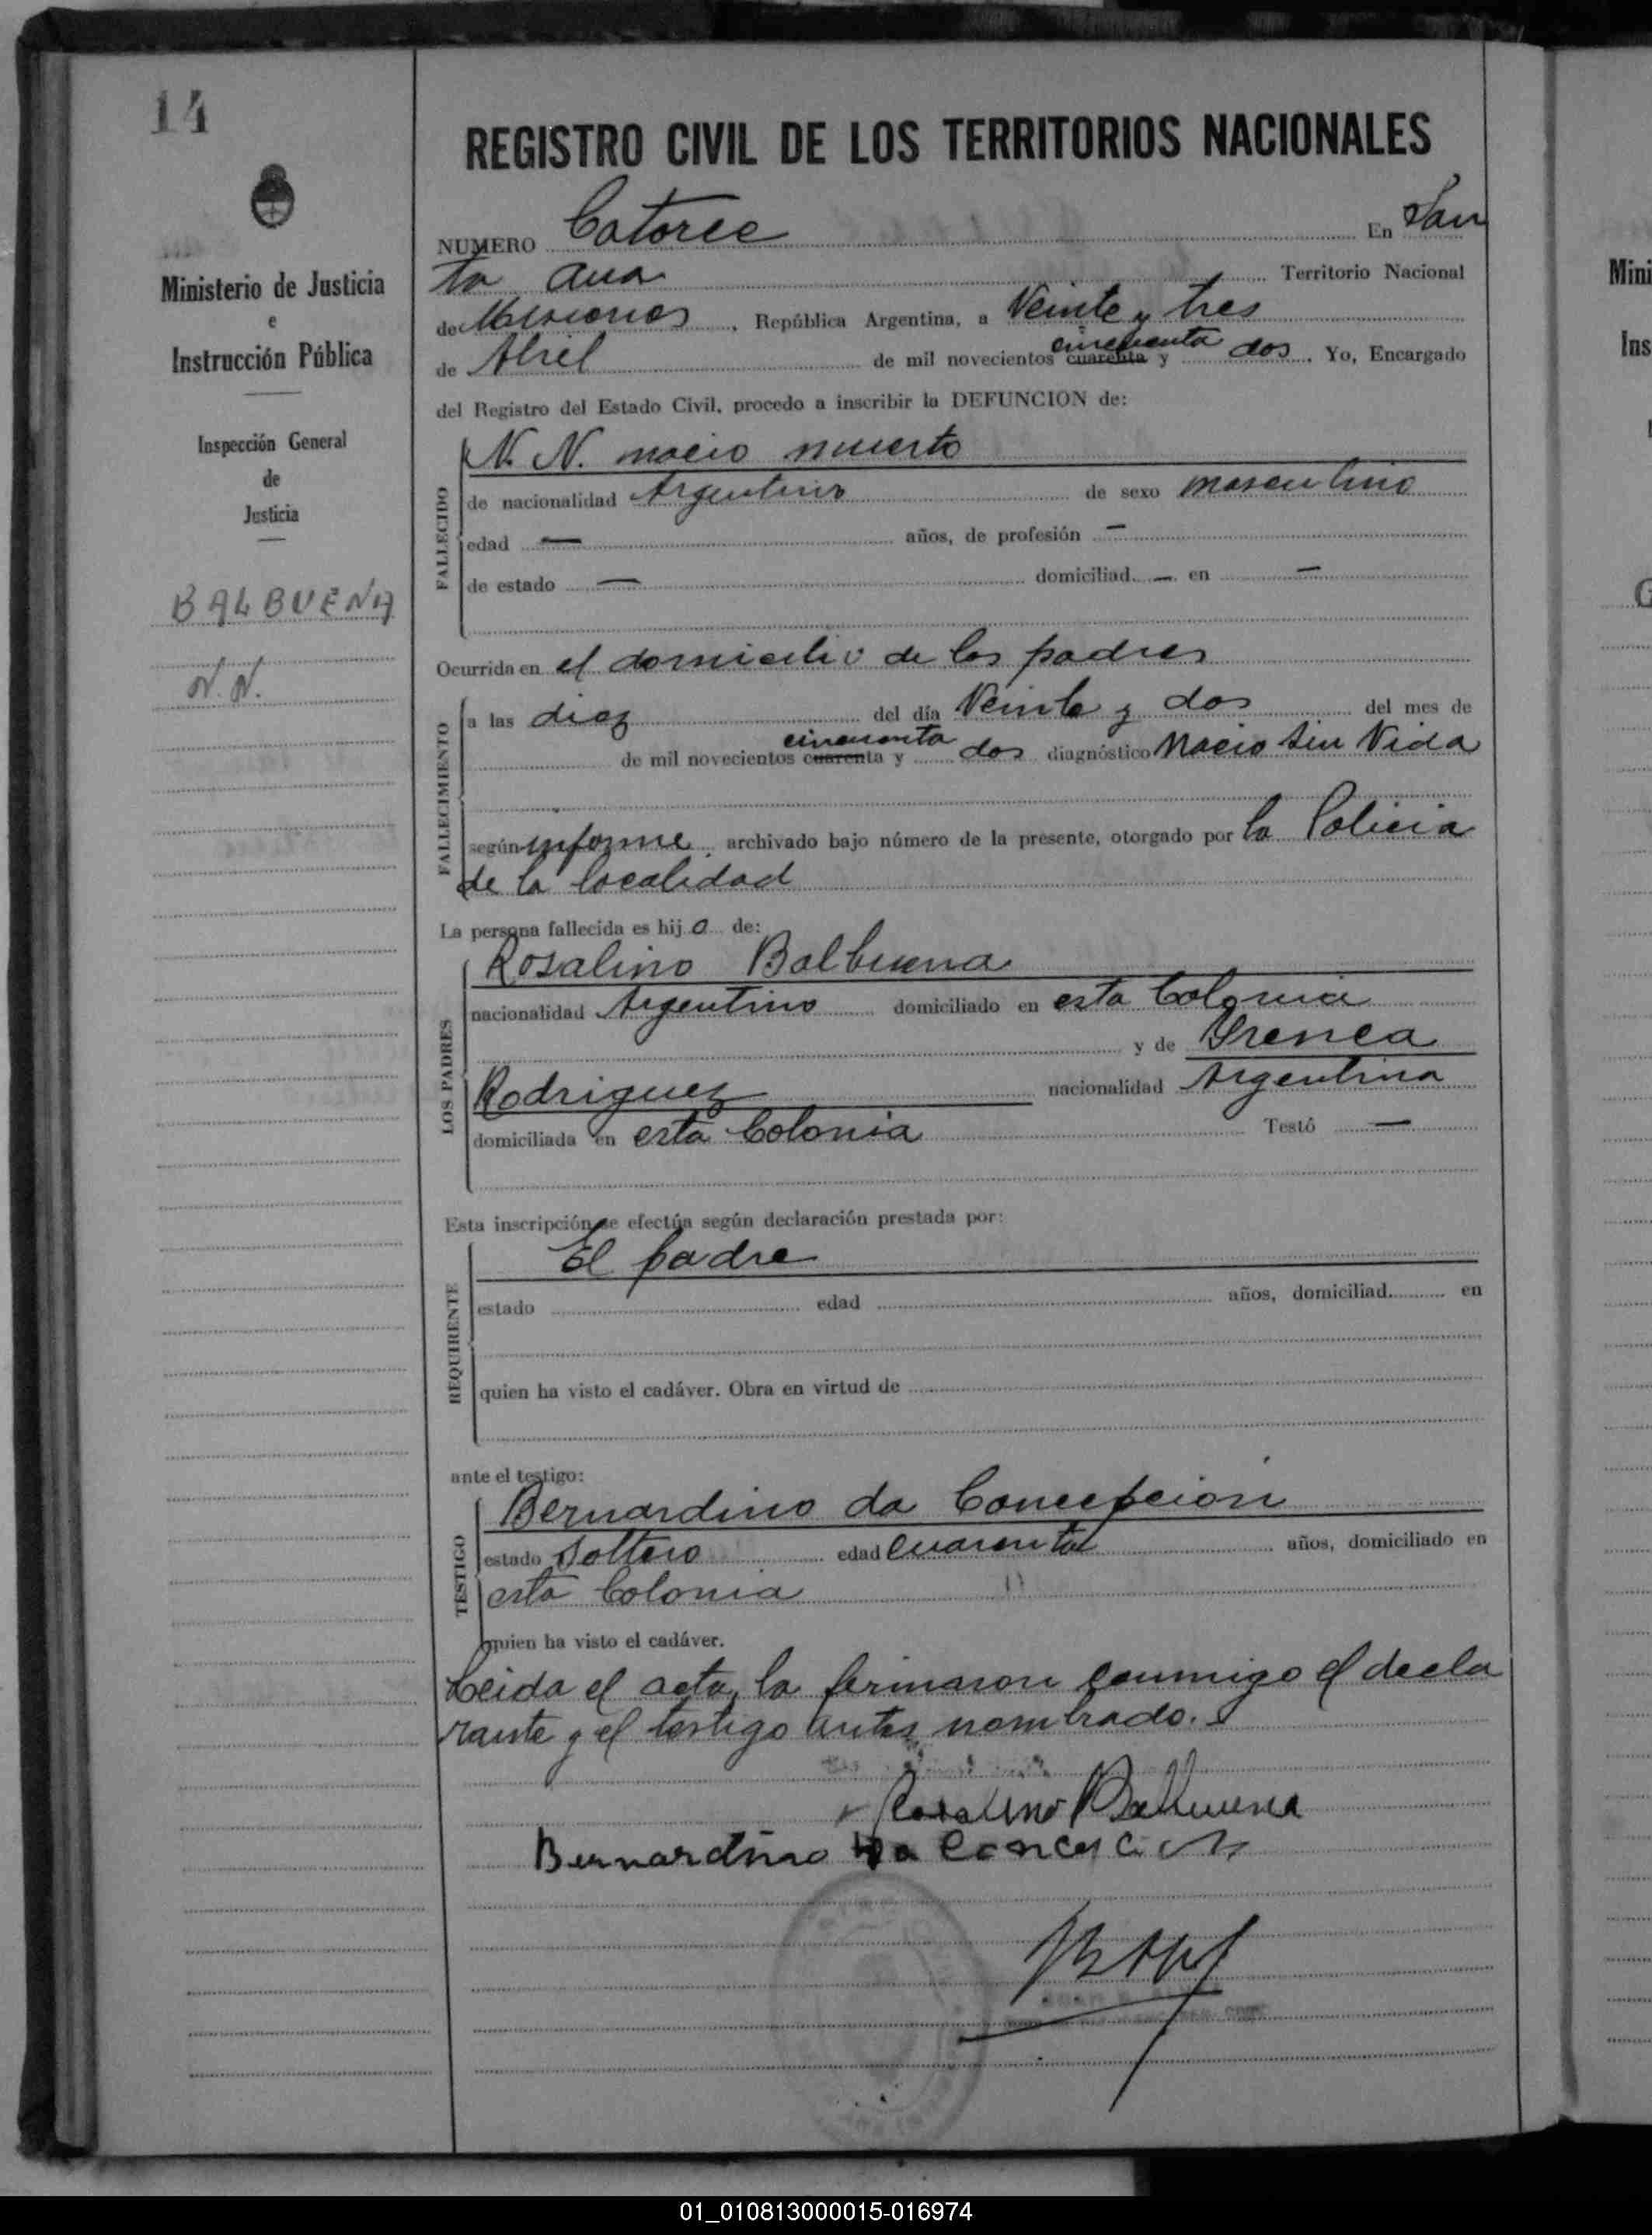 14
Ministerio de Justicia
e
Instrucción Pública
Inspección General
de
Justicia
BALBUENA
N. N.
REGISTRO CIVIL DE LOS TERRITORIOS NACIONALES
NUMERO Catorce En San
ta Ana Territorio Nacional
de Misiones, República Argentina, a Veinte y tres
de Abril de mil novecientos cuarenta cincuenta y dos. Yo, Encargado
del Registro del Estado Civil, procedo a inscribir la DEFUNCION de:
FALLECIDO
N. N. nacio muerto
de nacionalidad Argentino de sexo masculino
edad — años, de profesión —
de estado — domiciliad — en —
Ocurrida en el domicilio de los padres
FALLECIMIENTO
a las diez del día Veinte y dos del mes de
de mil novecientos cuarenta cincuenta y dos diagnóstico Nacio sin Vida
según informe, archivado bajo número de la presente, otorgado por la Policia
de la localidad
La persona fallecida es hijo de:
LOS PADRES
Rosalino Balbuena
nacionalidad Argentino domiciliado en esta Colonia
y de Irenea
Rodriguez nacionalidad Argentina
domiciliada en esta Colonia Testó —
Esta inscripción se efectúa según declaración prestada por:
REQUIRENTE
El padre
estado edad años, domiciliad en
quien ha visto el cadáver. Obra en virtud de
ante el testigo:
TESTIGO
Bernardino da Concepcion
estado Soltero edad cuarenta años, domiciliado en
esta Colonia
quien ha visto el cadáver.
Leida el acta, la firmaron conmigo el decla
rante y el testigo antes nombrado.
Rosalino Balbuena
Bernardino Da
01_010813000015-016974